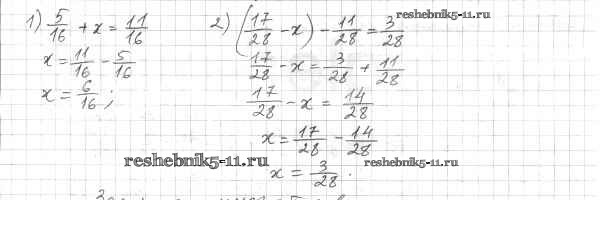 1) 5/16 + x = 11/16
x = 11/16 - 5/16
x = 6/16 ;
2) (17/28 - x) - 11/28 = 3/28
17/28 - x = 3/28 + 11/28
17/28 - x = 14/28
x = 17/28 - 14/28
x = 3/28 .
reshebnik5-11.ru
reshebnik5-11.ru
reshebnik5-11.ru